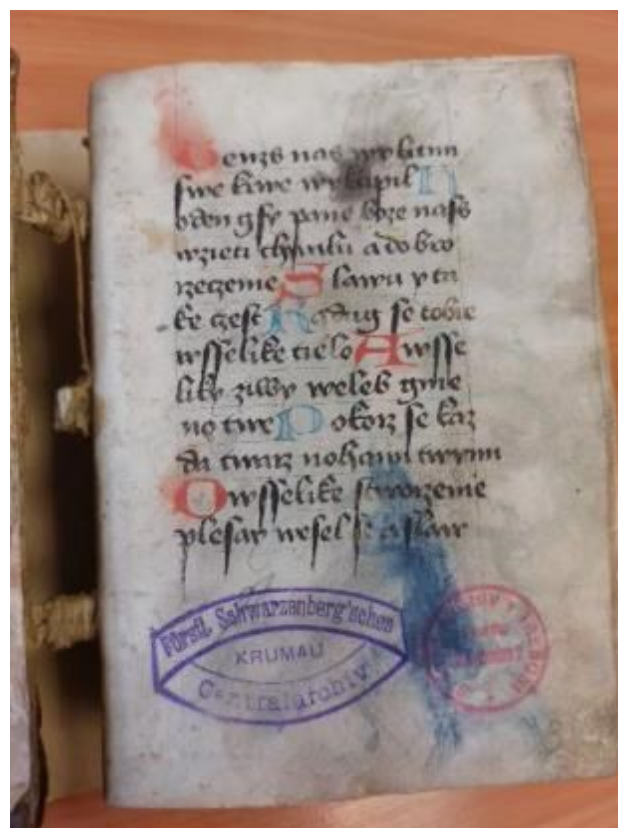 Genzs nas wykupil
swe krwe wykupil N
oden gsy pane boze nass
wzieti chwalu a dobro
rzeczenie Slawu y tu
ke czest Radug se tobie
wsselike tielo A wsse
liky ziwy weleb gme
no twe Pokorz se kaz
da twarz nohami twymi
O wsselike stworzenie
plesay wesel se a slaw
Fürstl. Schwarzenberg'sches
KRUMAU
Centralarchiv